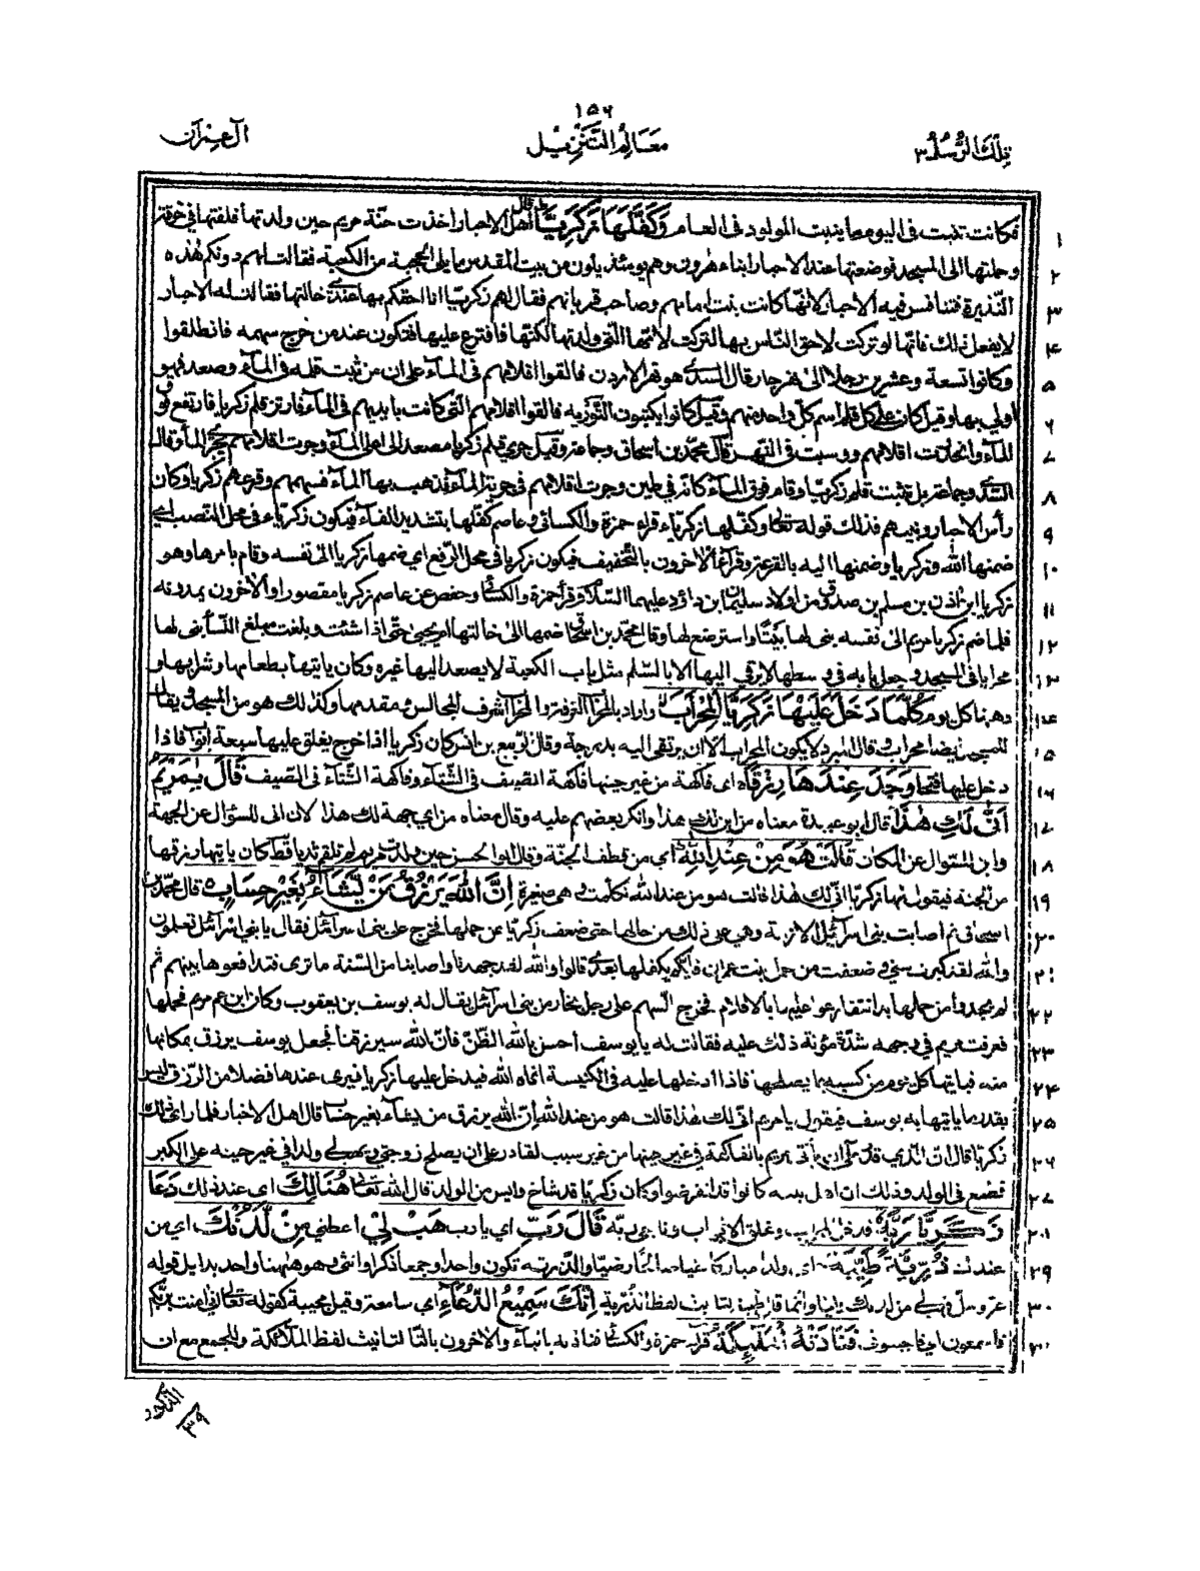 ١٥٦
تلك الرسل ٣
معالم التنزيل
آل عمران
١ فكانت تنبت فى اليوم ما ينبت المولود فى العام وَكَفَّلَهَا زَكَرِيَّا قال اهل الاخبار اخذت حنّة مريم حين ولدتها فلفتها فى خرقة
٢ وحملتها الى المسجد فوضعتها عند الاحبار ابناء هرون وهم يومئذ يلون من بيت المقدس ما يلى الحجبة من الكعبة فقالت لهم دونكم هذه
٣ النّذيرة فتنافس فيه الاحبار لانّها كانت بنت امامهم وصاحب قربانهم فقال لهم زكريّا انا احقكم بها عندى خالتها فقالت له الاحبار
٤ لا يفعل ذلك فانّها لو تركت لاحق النّاس بها لتركت لامّها الّتى ولدتها لكنّها فاقترع عليها فتكون عند من خرج سهمه فانطلقوا
٥ وكانوا تسعة وعشرين رجلا الىٰ نهر جار قال السدى هو نهر الاردن فالقوا اقلامهم فى المآء على ان من ثبت قلمه فى المآء وصعد فهو
٦ اولى بها وقيل كان على كل قلم اسم كلّ واحد منهم وقيل كانوا يكتبون التّورٰية فالقوا اقلامهم التّى كانت بايديهم فى المآء فارتز قلم زكريا فارتفع فوق
٧ المآء وانحدرت اقلامهم ورسبت فى النّهر قال محمّد بن اسحاق وجماعة وقيل جرى قلم زكريا مصعدا الى اعلى المآء وجرت اقلامهم بجرى المآء وقال
٨ السّدى وجماعة بل ثبتت قلم زكريّا وقام فوق المآء كانه فى طين وجرت اقلامهم فى جرية المآء فذهب بها المآء فسهمهم وقرعهم زكريا وكان
٩ رأس الاحبار ونبيهم فذلك قوله تعالٰى وكفلها زكريّاء قراء حمزة والكسائى وعاصم كفّلها بتشديد الفآء فيكون زكريّاء فى محل النصب اى
١٠ ضمنها الله زكريا وضمنها اليه بالقرعة وقرأ الاخرون بالتّخفيف فيكون زكريا فى محل الرّفع اى ضمها زكريا الى نفسه وقام بامرها وهو
١١ زكريا ابن اذن بن مسلم بن صدوق من اولاد سليمان بن داؤد عليهما السّلام وقرأ حمزة والكسائى وحفص عن عاصم زكريا مقصورا والآخرون يمدونه
١٢ فلما ضم زكريا مريم الىٰ نفسه بنى لها بيتا واسترضع لها وقال محمّد بن اسحٰق ضمها الىٰ خالتها ام يحيىٰ حتّى اذا شبت وبلغت مبلغ النّساء بنى لها
١٣ محرابا فى المسجد وجعل بابه فى وسطها لا يرقى اليها الا بالسّلم مثل باب الكعبة لا يصعد اليها غيره وكان ياتيها بطعامها وشرابها و
١٤ دهنها كل يوم كُلَّمَا دَخَلَ عَلَيْهَا زَكَرِيَّا الْمِحْرَابَ واراد بالمحراب الغرفة والمحراب اشرف المجالس ومقدمها وكذلك هو من المسجد ويقال
١٥ للمسجد ايضا محراب وقال المبرد لا يكون المحراب الا ان يرتقى اليه بدرجة وقال الربيع بن انس كان زكريا اذا خرج يغلق عليها سبعة ابواب فاذا
١٦ دخل عليها فتحها وَجَدَ عِنْدَهَا رِزْقًا اى فاكهة من غير حينها فاكهة الصّيف فى الشّتآء وفاكهة الشّتآء فى الصّيف قَالَ يٰمَرْيَمُ
١٧ اَنّٰى لَكِ هٰذَا قال ابو عبيدة معناه من اين لك هذا وانكر بعضهم عليه وقال معناه من اى جهة لك هذا لان انى للسؤال عن الجهة
١٨ واين للسئوال عن المكان قَالَتْ هُوَ مِنْ عِنْدِ اللّٰهِ اى من قطف الجنّة وقال ابو الحسن حين ولدت مريم لم تلقم ثديا قط كان ياتيها رزقها
١٩ من الجنة فيقول لها زكريا انّى لك هٰذا قالت هو من عند الله تكلمت وهى صغيرة اِنَّ اللّٰهَ يَرْزُقُ مَنْ يَّشَآءُ بِغَيْرِ حِسَابٍ قال محمّد بن
٢٠ اسحاق ثم اصابت بنى اسرآئيل الازمة وهى على ذلك من حالها حتى ضعف زكريّا عن حملها فخرج على بنى اسرآئيل فقال يا بنى اسرآئيل تعلمون
٢١ والله لقد كبرت سنى وضعفت من حمل بنت عمران فايكم يكفلها بعدى قالوا والله لقد جهدنا واصابنا من السّنة ما ترى فتدافعوها بينهم ثم
٢٢ لم يجدوا من حملها بدا فتقارعوا عليها بالاقلام فخرج السّهم على رجل نجار من بنى اسرآئيل يقال له يوسف بن يعقوب وكان ابن عم مريم فحملها
٢٣ فعرفت مريم فى وجهه شدّة مؤنة ذلك عليه فقالت له يا يوسف احسن بالله الظّنّ فانّ الله سيرزقنا فجعل يوسف يرزق بمكانها
٢٤ منه فياتيها كل يوم من كسبه بما يصلحها فاذا ادخلها عليه فى الكنيسة انماه الله فيدخل عليها زكريا فيرى عندها فضلا من الرّزق ليس
٢٥ بقدر ما ياتيها به يوسف فيقول يا مريم انّى لك هٰذا قالت هو من عند الله انّ الله يرزق من يشآء بغير حساب قال اهل الاخبار فلما راى ذلك
٢٦ زكريا قال ان الّذى قدر على ان يأتى مريم بالفاكهة فى غير حينها من غير سبب لقادر على ان يصلح زوجتى ويهب لى ولدا فى غير حينه على الكبر
٢٧ فطمع فى الولد وذلك ان اهل بيته كانوا قد انقرضوا وكان زكريا قد شاخ وايس من الولد قال الله تعالٰى هُنَالِكَ اى عند ذلك دَعَا
٢٨ زَكَرِيَّا رَبَّهٗ فدخل المحراب وغلق الابواب وناجى ربّه قَالَ رَبِّ اى يا رب هَبْ لِىْ اعطنى مِنْ لَّدُنْكَ اى من
٢٩ عندك ذُرِّيَّةً طَيِّبَةً اى ولدا مباركا تقيا صالحا رضيّا والذّريّة تكون واحدا وجمعا ذكرا وانثى وهو ههنا واحد بدليل قوله
٣٠ عز وجل فهب لى من لدنك وليا وانما قال طيبة لتانيث لفظ الذّرّية اِنَّكَ سَمِيْعُ الدُّعَآءِ اى سامعه وقيل مجيبه كقوله تعالٰى انى امنت بربّكم
٣١ فاسمعون اى فاجيبون فَنَادَتْهُ الْمَلٰٓئِكَةُ قرأ حمزة والكسائى فناديه بالياء والآخرون بالتّاء لتانيث لفظ الملآئكة وللجمع مع ان